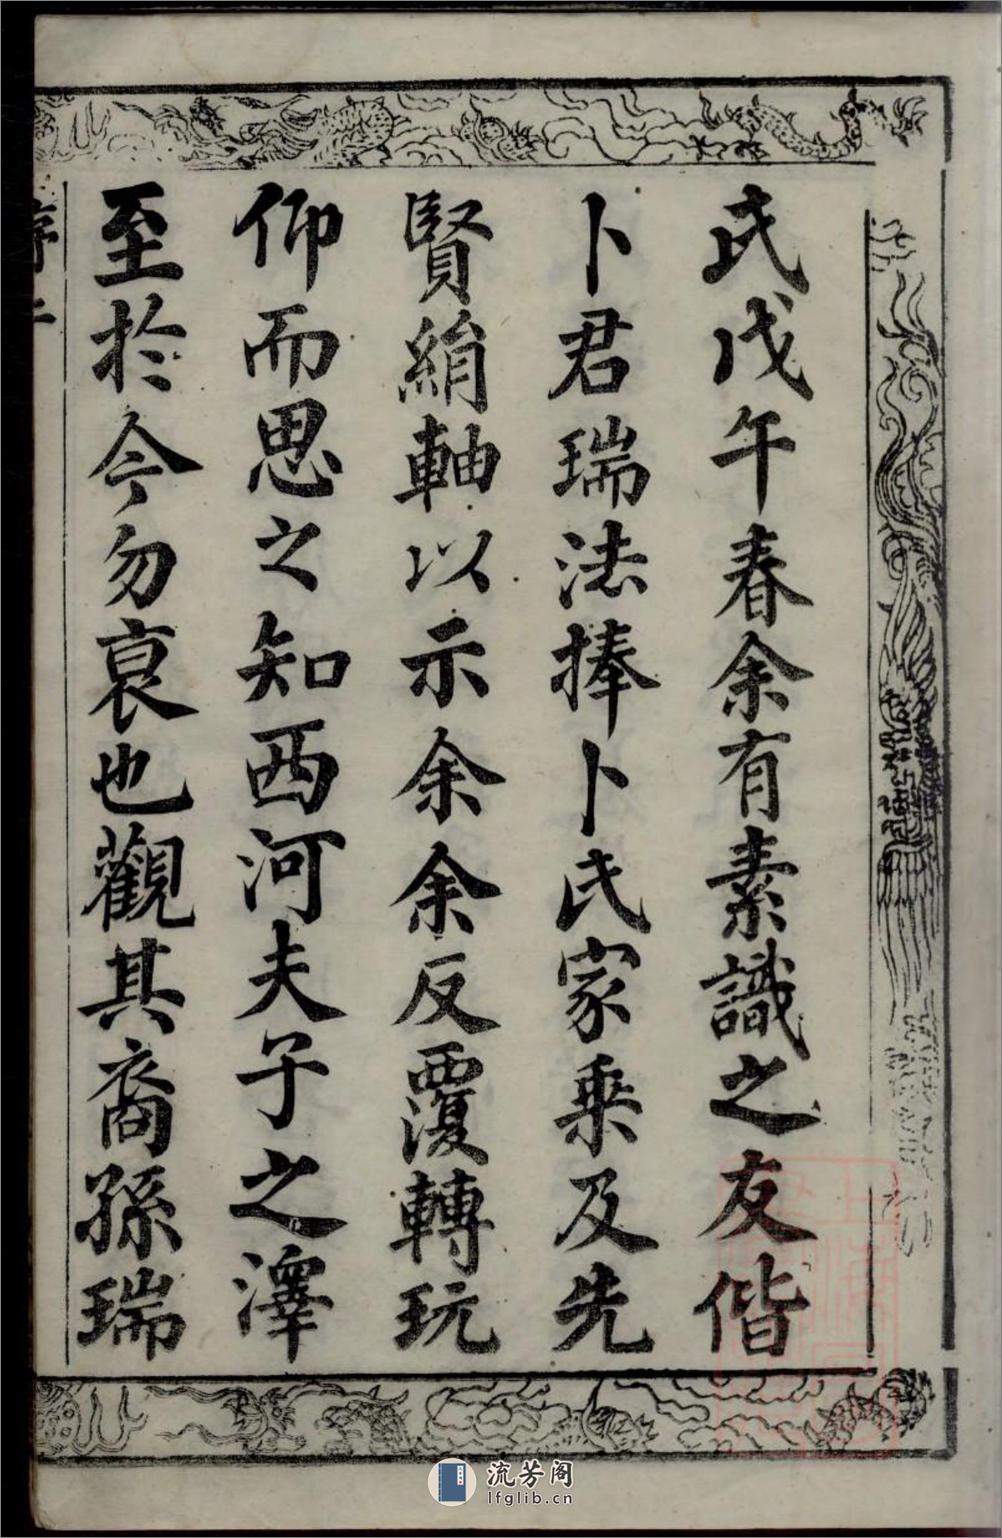 氏戊午春余有素識之友偕
卜君瑞法捧卜氏家乗及先
賢絹軸以示余余反覆轉玩
仰而思之知西河夫子之澤
至於今勿衰也觀其裔孫瑞
流芳阁
lfglib.cn